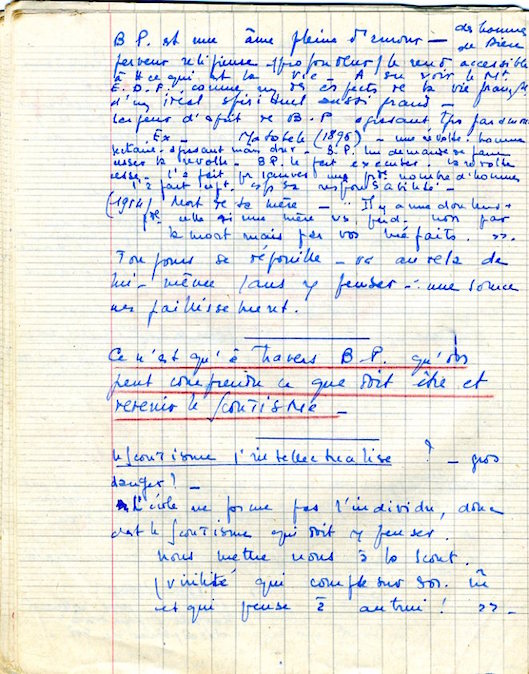 B P. est une âme pleine d'amour — des hommes
de Dieu
ferveur religieuse (profondeur) le rend accessible
à tt ce qui est la vie — A su voir le Mt
E. D. F. comme un des effets de la vie franç
d'un idéal spirituel aussi grand —
B. P agissant
Ex — Matabélé (1896) — une révolte - homme
sectaire agissant mais dur. B. P. lui demande de faire
cesser la révolte — B. P. le fait exécuter. la révolte
cesse. l'a fait pr épargner une gde nombre d'hommes
l'a fait sa responsabilité —
(1914) Mort de sa mère — Il y a une douleur +
gde celle si une mère vs perd non par
la mort mais par vos méfaits. »
Toujours se refouille — va au delà de
lui-même sans y penser — une source
un jaillissement.
Ce n'est qu'à travers B-P. qu'on
peut comprendre ce que doit être et
revenir le Scoutisme —
Le Scoutisme s'intellectualise ? — gros
danger ! —
L'école ne forme pas l'individu, donc
c'est le Scoutisme qui doit y penser.
nous mettre nous à la scout.
(virilité qui compte sur soi. m̂
et qui pense à autrui ! » —